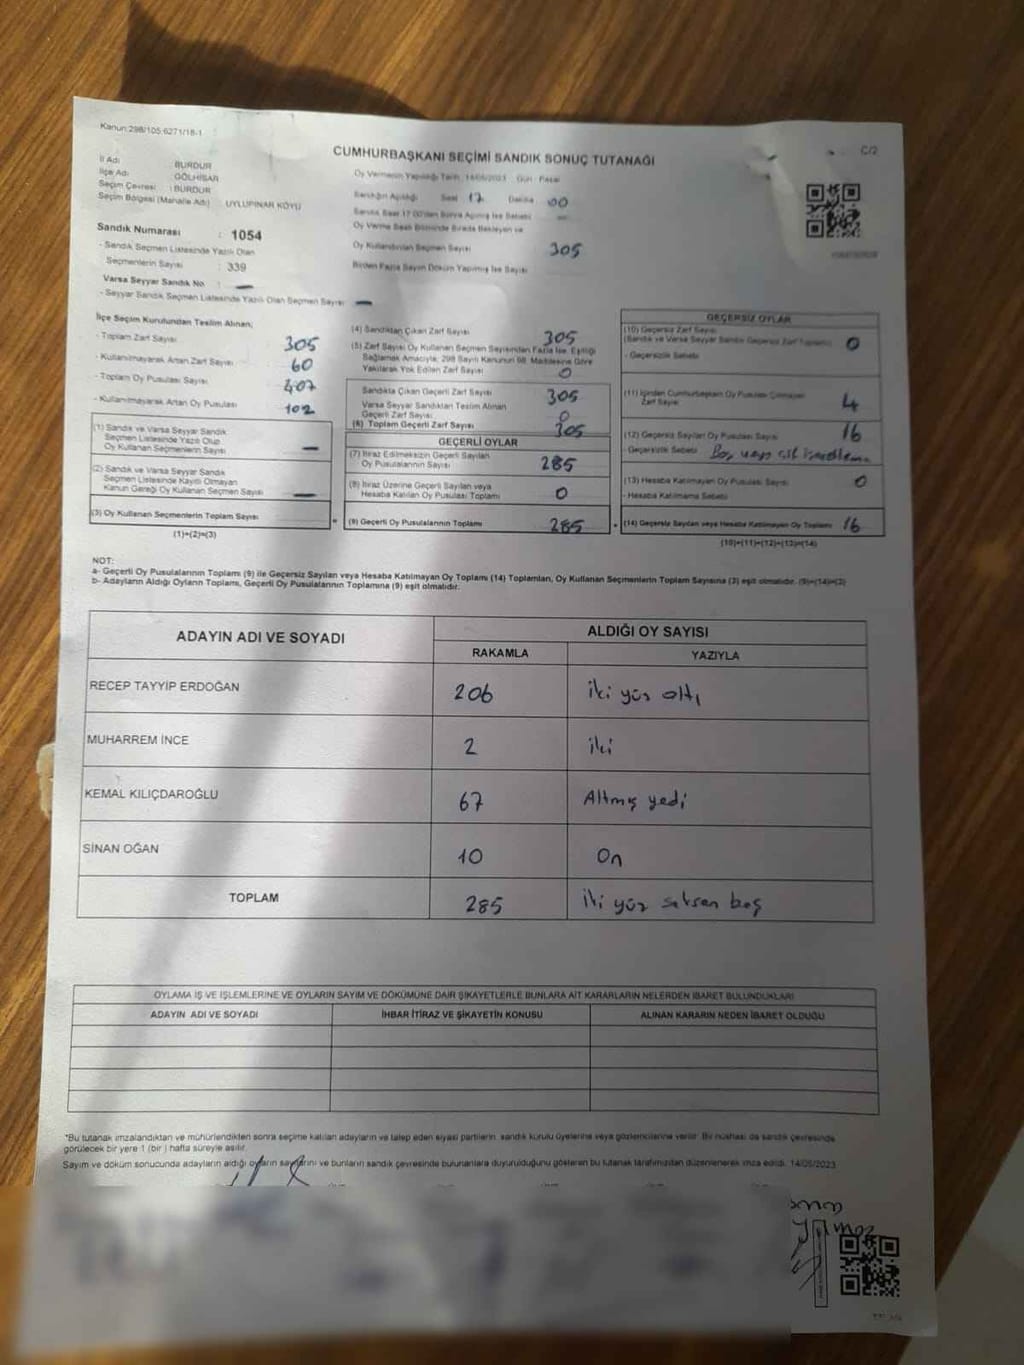 Kanun:298/105;6271/18-1
C/2
CUMHURBAŞKANI SEÇİMİ SANDIK SONUÇ TUTANAĞI
İl Adı BURDUR
İlçe Adı GÖLHİSAR
Seçim Çevresi : BURDUR
Seçim Bölgesi (Mahalle Adı) : UYLUPINAR KÖYÜ
Oy Vermenin Yapıldığı Tarih : 14/05/2023 Gün : Pazar
Sandığın Açıldığı Saat 17 Dakika 00
Sandık Saat 17:00'den Sonra Açılmış İse Sebebi
Oy Verme Saati Bitiminde Sırada Bekleyen ve
Oy Kullandırılan Seçmen Sayısı 305
Birden Fazla Sayım Döküm Yapılmış İse Sayısı
Sandık Numarası : 1054
- Sandık Seçmen Listesinde Yazılı Olan
Seçmenlerin Sayısı : 339
Varsa Seyyar Sandık No : —
- Seyyar Sandık Seçmen Listesinde Yazılı Olan Seçmen Sayısı —
İlçe Seçim Kurulundan Teslim Alınan;
- Toplam Zarf Sayısı 305
- Kullanılmayarak Artan Zarf Sayısı 60
- Toplam Oy Pusulası Sayısı 407
- Kullanılmayarak Artan Oy Pusulası 102
(1) Sandık ve Varsa Seyyar Sandık
Seçmen Listesinde Yazılı Olup
Oy Kullanan Seçmenlerin Sayısı —
(2) Sandık ve Varsa Seyyar Sandık
Seçmen Listesinde Kayıtlı Olmayan
Kanun Gereği Oy Kullanan Seçmen Sayısı —
(3) Oy Kullanan Seçmenlerin Toplam Sayısı
(1)+(2)=(3)
(4) Sandıktan Çıkan Zarf Sayısı 305
(5) Zarf Sayısı Oy Kullanan Seçmen Sayısından Fazla İse, Eşitliği
Sağlamak Amacıyla, 298 Sayılı Kanunun 98. Maddesine Göre
Yakılarak Yok Edilen Zarf Sayısı 0
Sandıkta Çıkan Geçerli Zarf Sayısı 305
Varsa Seyyar Sandıktan Teslim Alınan
Geçerli Zarf Sayısı 0
(6) Toplam Geçerli Zarf Sayısı 305
GEÇERLİ OYLAR
(7) İtiraz Edilmeksizin Geçerli Sayılan
Oy Pusulalarının Sayısı 285
(8) İtiraz Üzerine Geçerli Sayılan veya
Hesaba Katılan Oy Pusulası Toplamı 0
(9) Geçerli Oy Pusulalarının Toplamı 285
GEÇERSİZ OYLAR
(10) Geçersiz Zarf Sayısı
(Sandık ve Varsa Seyyar Sandık Geçersiz Zarf Toplamı) 0
- Geçersizlik Sebebi
(11) İçinden Cumhurbaşkanı Oy Pusulası Çıkmayan
Zarf Sayısı 4
(12) Geçersiz Sayılan Oy Pusulası Sayısı 16
- Geçersizlik Sebebi Boş veya çift
(13) Hesaba Katılmayan Oy Pusulası Sayısı 0
- Hesaba Katılmama Sebebi
(14) Geçersiz Sayılan veya Hesaba Katılmayan Oy Toplamı 16
(10)+(11)+(12)+(13)=(14)
NOT:
a- Geçerli Oy Pusulalarının Toplamı (9) ile Geçersiz Sayılan veya Hesaba Katılmayan Oy Toplamı (14) Toplamları, Oy Kullanan Seçmenlerin Toplam Sayısına (3) eşit olmalıdır. (9)+(14)=(3)
b- Adayların Aldığı Oyların Toplamı, Geçerli Oy Pusulalarının Toplamına (9) eşit olmalıdır.
ADAYIN ADI VE SOYADI ALDIĞI OY SAYISI
RAKAMLA YAZIYLA
RECEP TAYYİP ERDOĞAN 206 iki yüz altı
MUHARREM İNCE 2 iki
KEMAL KILIÇDAROĞLU 67 Altmış yedi
SİNAN OĞAN 10 On
TOPLAM 285 iki yüz seksen beş
OYLAMA İŞ VE İŞLEMLERİNE VE OYLARIN SAYIM VE DÖKÜMÜNE DAİR ŞİKAYETLERLE BUNLARA AİT KARARLARIN NELERDEN İBARET BULUNDUKLARI
ADAYIN ADI VE SOYADI İHBAR İTİRAZ VE ŞİKAYETİN KONUSU ALINAN KARARIN NEDEN İBARET OLDUĞU
*Bu tutanak imzalandıktan ve mühürlendikten sonra seçime katılan adayların ve talep eden siyasi partilerin, sandık kurulu üyelerine veya gözlemcilerine verilir. Bir nüshası da sandık çevresinde
görülecek bir yere 1 (bir) hafta süreyle asılır.
Sayım ve döküm sonucunda adayların aldığı oyların sayılarını ve bunların sandık çevresinde bulunanlara duyurulduğunu gösteren bu tutanak tarafımızdan düzenlenerek imza edildi. 14/05/2023